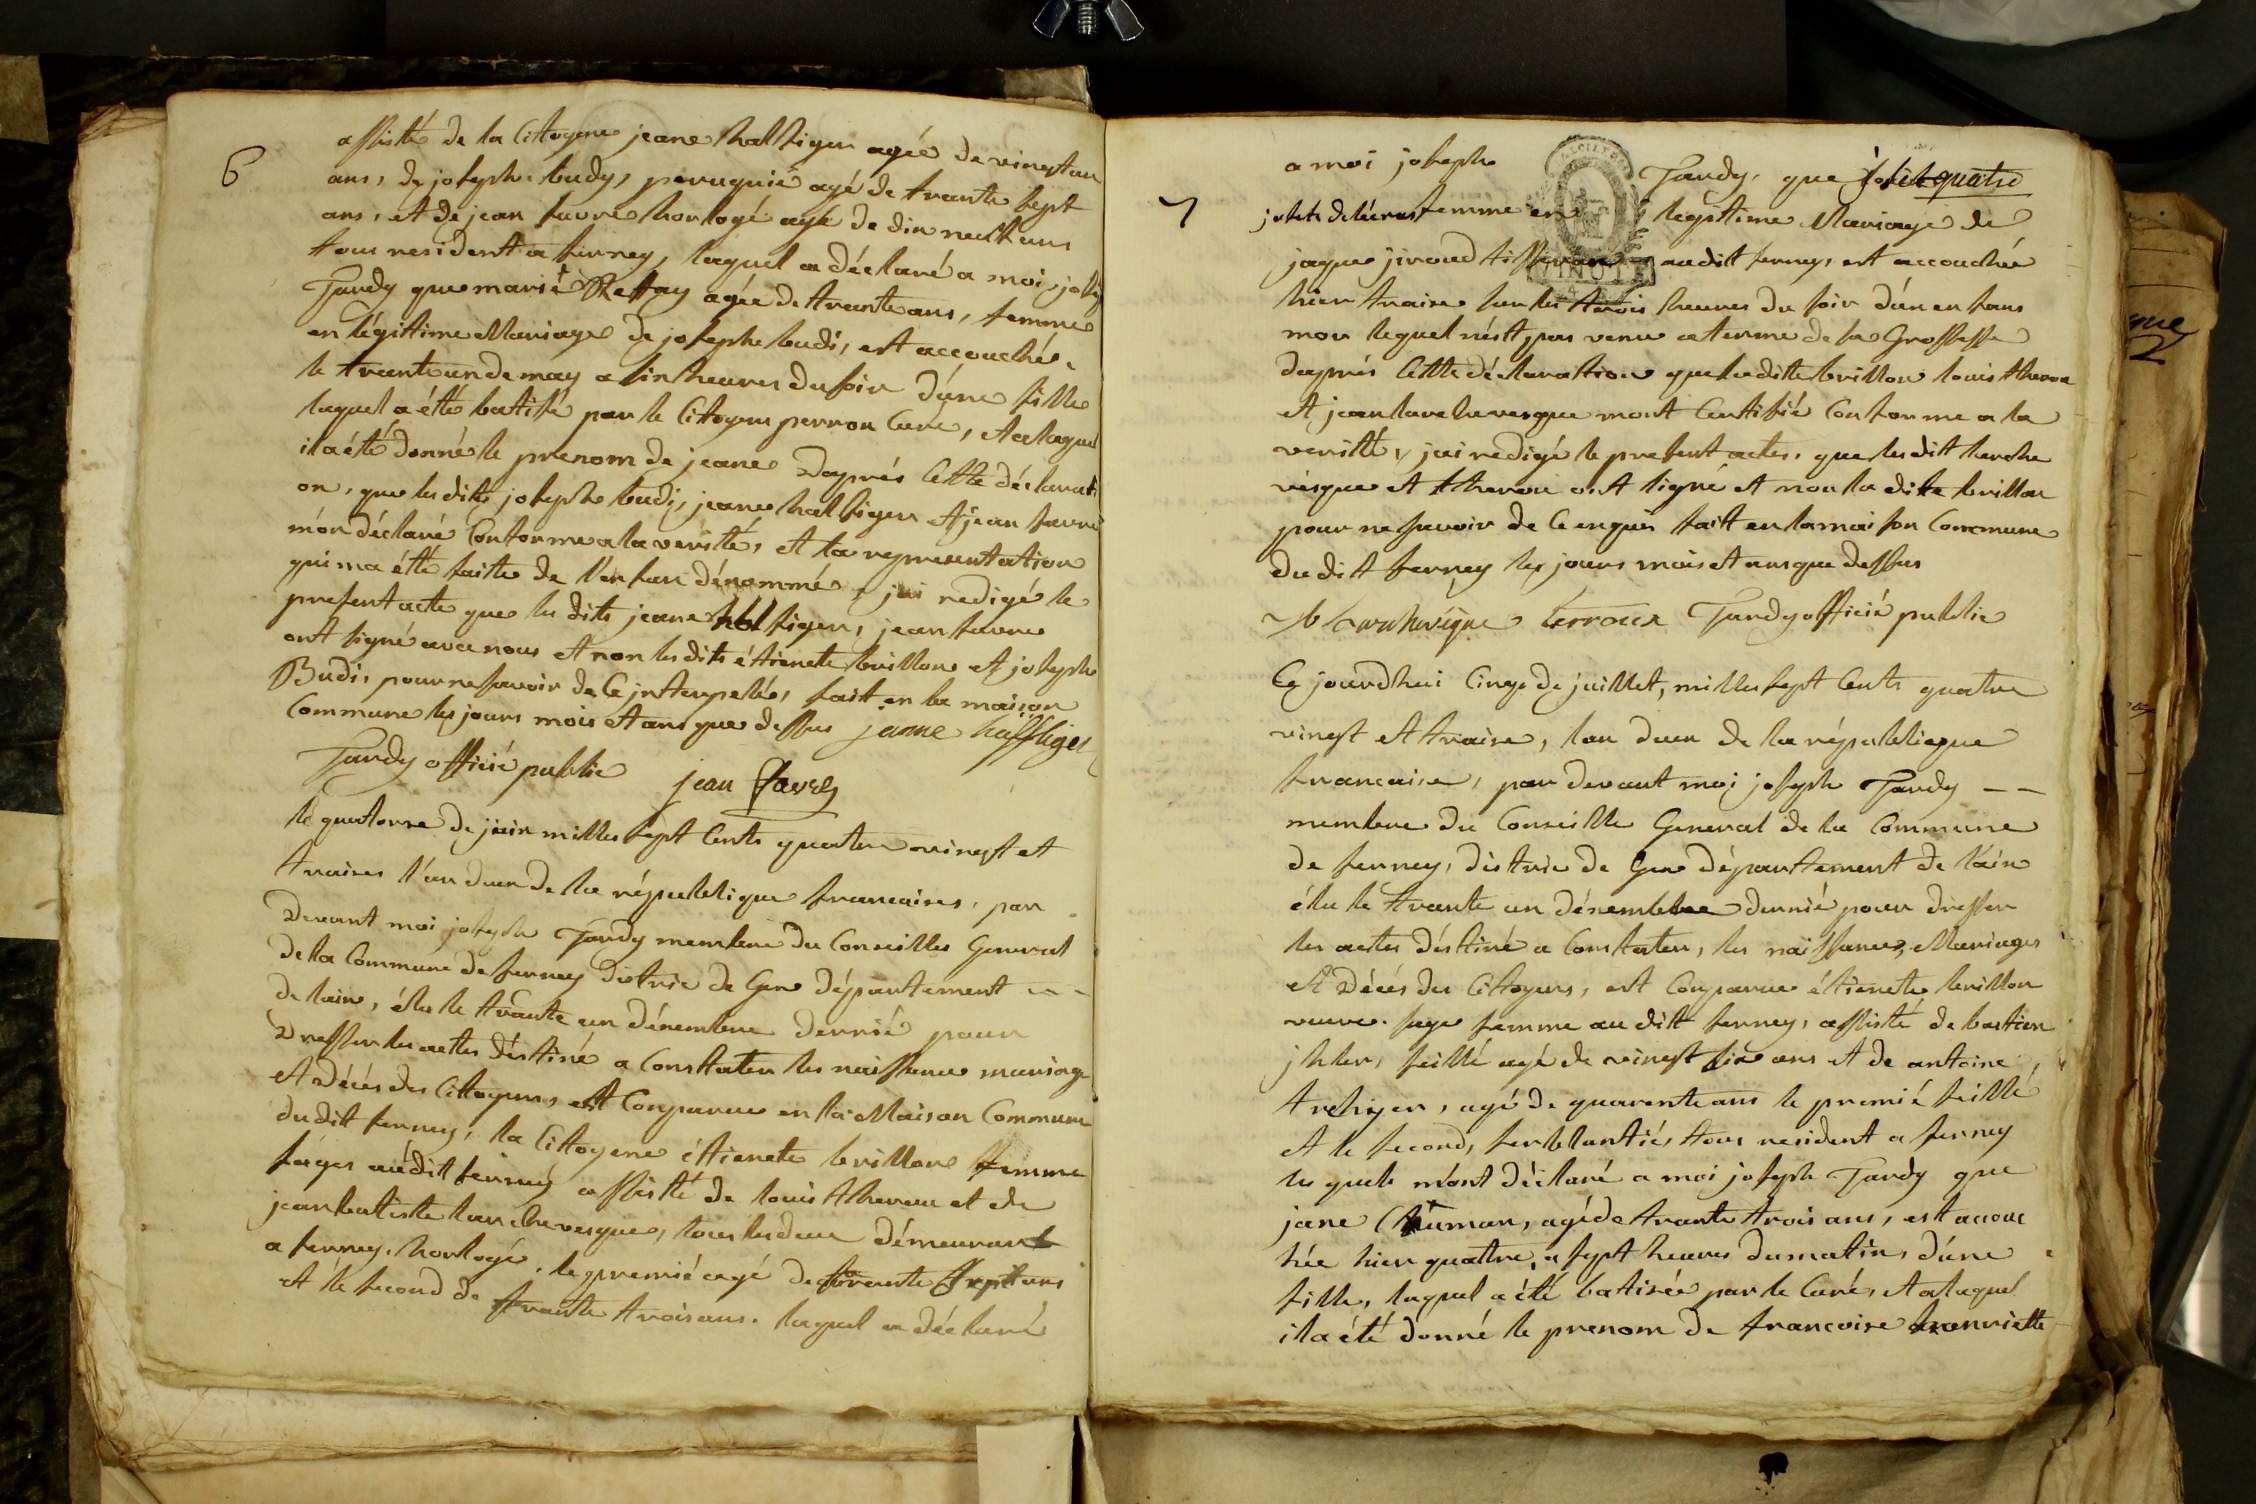 6
assisté de la Cittoyene jeane halfiger agée de vingt un
ans, de joseph budy, peruquié agé de trante sept
ans, et de jean favre horlogé agé de dix neuf ans
tous resident a ferney, laquel a déclaré a moi joseph
Tardy que marie Rettay agée de trante ans, femme
en légittime Mariage de joseph budi, est accouchée
le trante un de may a six heures du soir d'une fille
laquel a étté batisé par le Cittoyens perron Curé, et a laquel
il a été donné le prenom de jeane Daprés Cette déclarati
on, que les dits joseph budi, jeane halfiger et jean favre
m'on déclaré Conforme a la verité, et la representation
qui ma étté faitte de l'enfan dénommé, jai redigé le
present acte que les dits jeane halfiger, jean favre
ont signé avec nous et non les dits éttienete brillon et joseph
Budi, pour ne savoir de Ce interpelés, fait en la maison
Commune les jours mois et ans que dessus janne haffliger
Tardy officié public jean favre
le quatorze de juin milles sept Cents quatre vingt et
traizes l'an deux de la républiques francaises, par
Devant moi joseph Tardy membre du Conseilles General
de la Commune de ferney Distric de Gex département
de lain, élu le trante un décembre dernié pour
Dresser les acttes déstiné a Constater les naissance mariage
et Décés des Cittoyens, est Comparue en la Maison Commune
du dit ferney, la Cittoyene éttienete brillon femme
ságes audit ferney assisté de louis therou et de
jean batiste larchevesque, tous les deux démeurant
a ferney, horlogé. le premié agé de trante sept ans
et le second de trante trois ans. laquel a déclaré
7
a moi joseph Tardy, que
femme en legitime Mariage de
jaque jiroud audit ferney, est accouchée
hier traize sur les trois heures du soir d'un enfans
mor lequel n'ést pas venu a terme de sa Grossesse
daprés Cette déclarattion que ladite brillon louis therou
et jean larchevesque mont Certifié Conforme a la
veritté, jai redigé le present actes, que les dit larche
vésque et therou ont signé et non la dite brillon
pour ne savoir de Ce enquis fait en la maison Commune
du dit ferney les jours mois et ans que dessus
Larchevéque terroux Tardy officié public
Ce jourdhui Cinqs de juillet, milles sept Cents quatre
vingt et traize, lan deux de la républicque
francaise, par devant moi joseph Tardy
membre du Conseille General de la Commune
de ferney, distric de Gex département de láin
élu le trante un décembre dernié pour dresser
les actes déstiné a Constater, les naissances, Mariages
et Décés des Cittoyens, est Comparue éttienete brillon
veuve. sage femme au ditt ferney, assisté de bastien
agé de vingt six ans et de antoine
agé de quarente ans le premié
et le second, ferblantié, tous resident a ferney
les quels m'ont déclaré a moi joseph Tardy que
jane agé de trante trois ans, est accou
hée hier quattre, a sept heures du matin, dúne
fille, laquel a été batisée par le Curé, et a laquel
il a été donné le prenom de francoise henriette